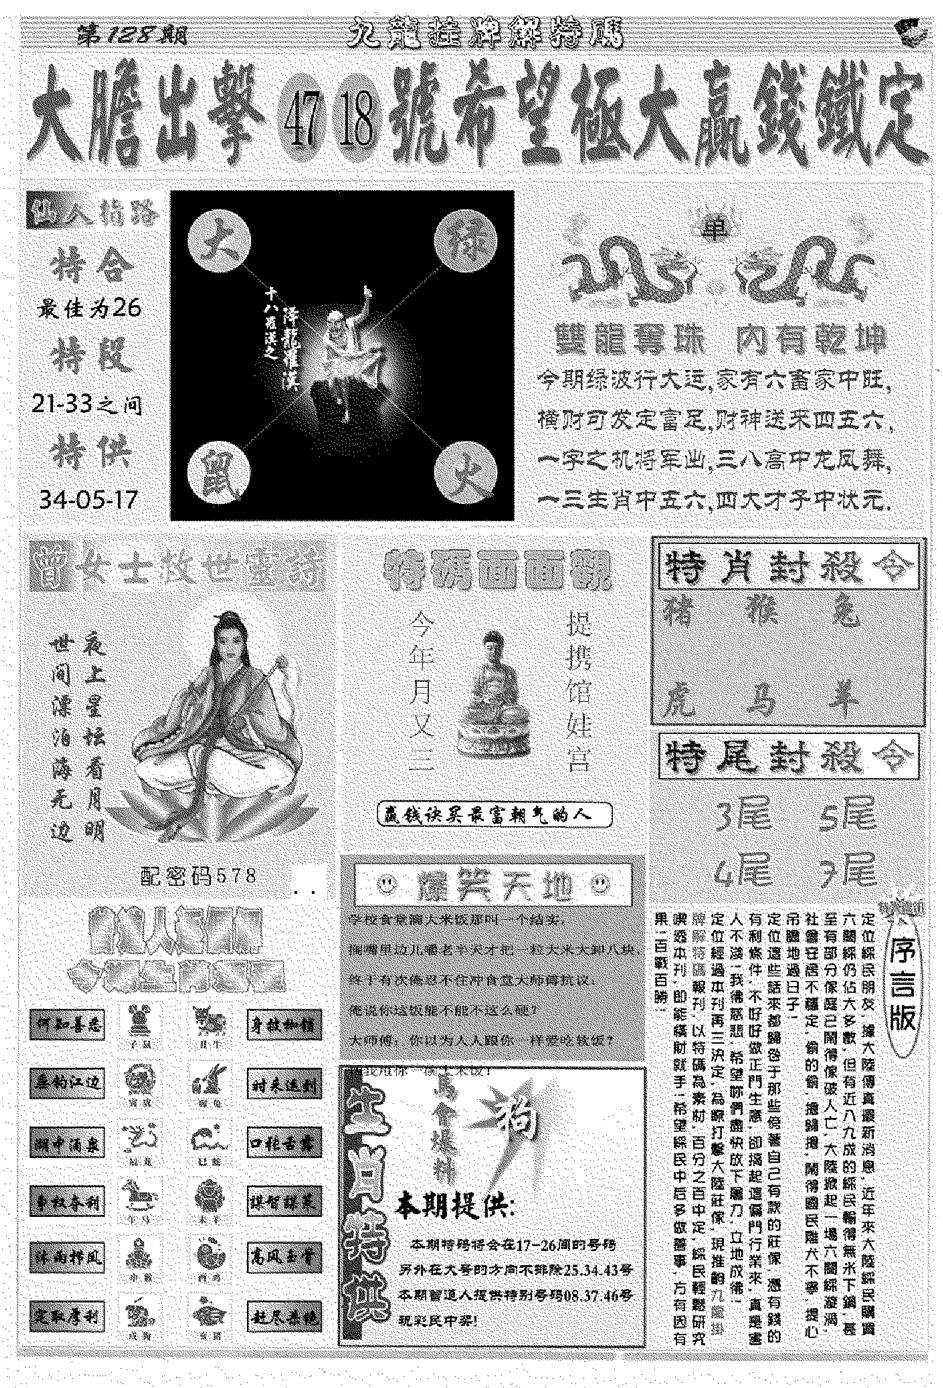 第128期
九龍挂牌解特碼
大膽出擊 47 18 號希望極大贏錢鐵定
仙人指路
特合
最佳为26
特段
21-33之间
特供
34-05-17
大
绿
十八羅漢之
降龍羅漢
鼠
火
单
雙龍奪珠 內有乾坤
今期绿波行大运,家有六畜家中旺,
横财可发定富足,财神送来四五六,
一字之机将军出,三八高中龙凤舞,
一三生肖中五六,四大才子中状元.
曾女士救世靈詩
夜上星坛看月明
世间漂泊海无边
配密码578
特碼面面觀
提携馆娃宫
今年月又三
赢钱诀买最富朝气的人
特肖封殺令
猪 猴 兔
虎 马 羊
特尾封殺令
3尾 5尾
4尾 7尾
爆笑天地
学校食堂滴大米饭那叫一个结实,
搁嘴里边儿嚼老半天才把一粒大米大卸八块,
终于有次俺忍不住冲食堂大师傅抗议:
俺说你这饭能不能不这么硬?
大师傅：你以为人人跟你一样爱吃软饭?
何知善恶
子鼠
丑牛
身披枷锁
垂钓江边
寅虎
卯兔
时来运到
湖中涌泉
辰龙
巳蛇
口花舌露
争权夺利
午马
未羊
谋智谋策
沐雨栉风
申猴
酉鸡
高风玉骨
定取厚利
戌狗
亥猪
赶尽杀绝
生肖特供
馬會爆料
狗
本期提供:
本期特码将会在17-26间的号码
另外在大号的方向不排除25.34.43号
本期曾道人提供特别号码08.37.46号
祝彩民中奖!
序言版
定位綵民朋友,據大陸傳真最新消息,近年來大陸綵民購買
六閤綵仍佔大多數,但有近八九成的綵民輸得無米下鍋,甚
至有部分傢庭已鬧得傢破人亡,大陸掀起一場六閤綵漩渦,
社會存居不穩定,偷的偷,搶歸搶,鬧得國民雞犬不寧,提心
吊膽地過日子!
定位這些話來都歸咎于那些傍著自己有款的莊傢,憑有錢的
有利條件,不好好做正門生意,卻搞起這偏門行業來,真是害
人不淺!我彿慈悲,希望你們盡快放下屠刀,立地成彿!
定位經過本刊再三決定,為瞭打擊大陸莊傢,現推齣九龍掛
牌解特碼報刊,以特碼為素材,百分之百中定,綵民輕鬆研究
噢透本刊,即能橫財就手!希望綵民中后多做善事,方有因有
果!百戰百勝!